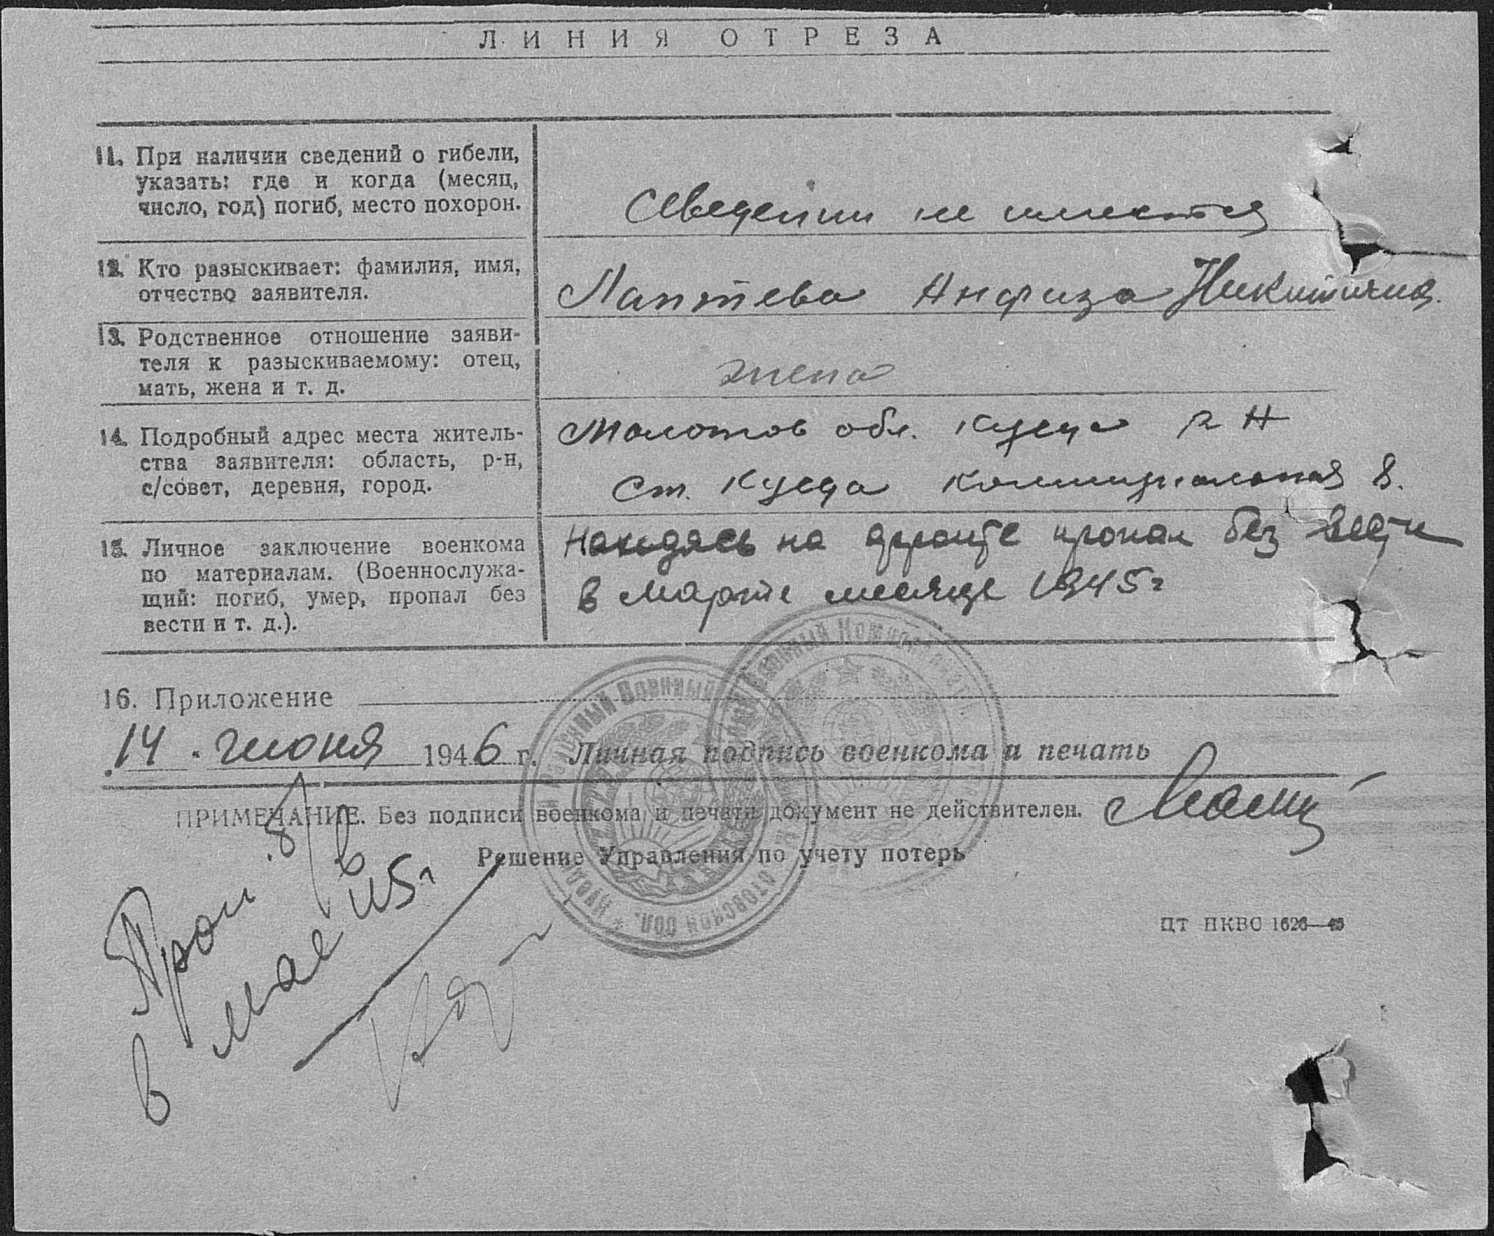 ЛИНИЯ ОТРЕЗА
11. При наличии сведений о гибели,
указать: где и когда (месяц,
число, год) погиб, место похорон.
Сведении не имеется
12. Кто разыскивает: фамилия, имя,
отчество заявителя.
Лаптева Анфиза Никитична.
13. Родственное отношение заяви-
теля к разыскиваемому: отец,
мать, жена и т. д.
жена
14. Подробный адрес места житель-
ства заявителя: область, р-н,
с/совет, деревня, город.
Молотов обл. Куеда р Н
ст. Куеда Коммунальная 8.
15. Личное заключение военкома
по материалам. (Военнослужа-
щий: погиб, умер, пропал без
вести и т. д.).
Находясь на фронте пропал без вести
в марте месяце 1945 г
16. Приложение
14. июня 1946 г. Личная подпись военкома и печать
ПРИМЕЧАНИЕ. Без подписи военкома и печати документ не действителен.
Решение Управления по учету потерь
Проп. б/в
в мае 45 г
ЦТ НКВС 1626—45